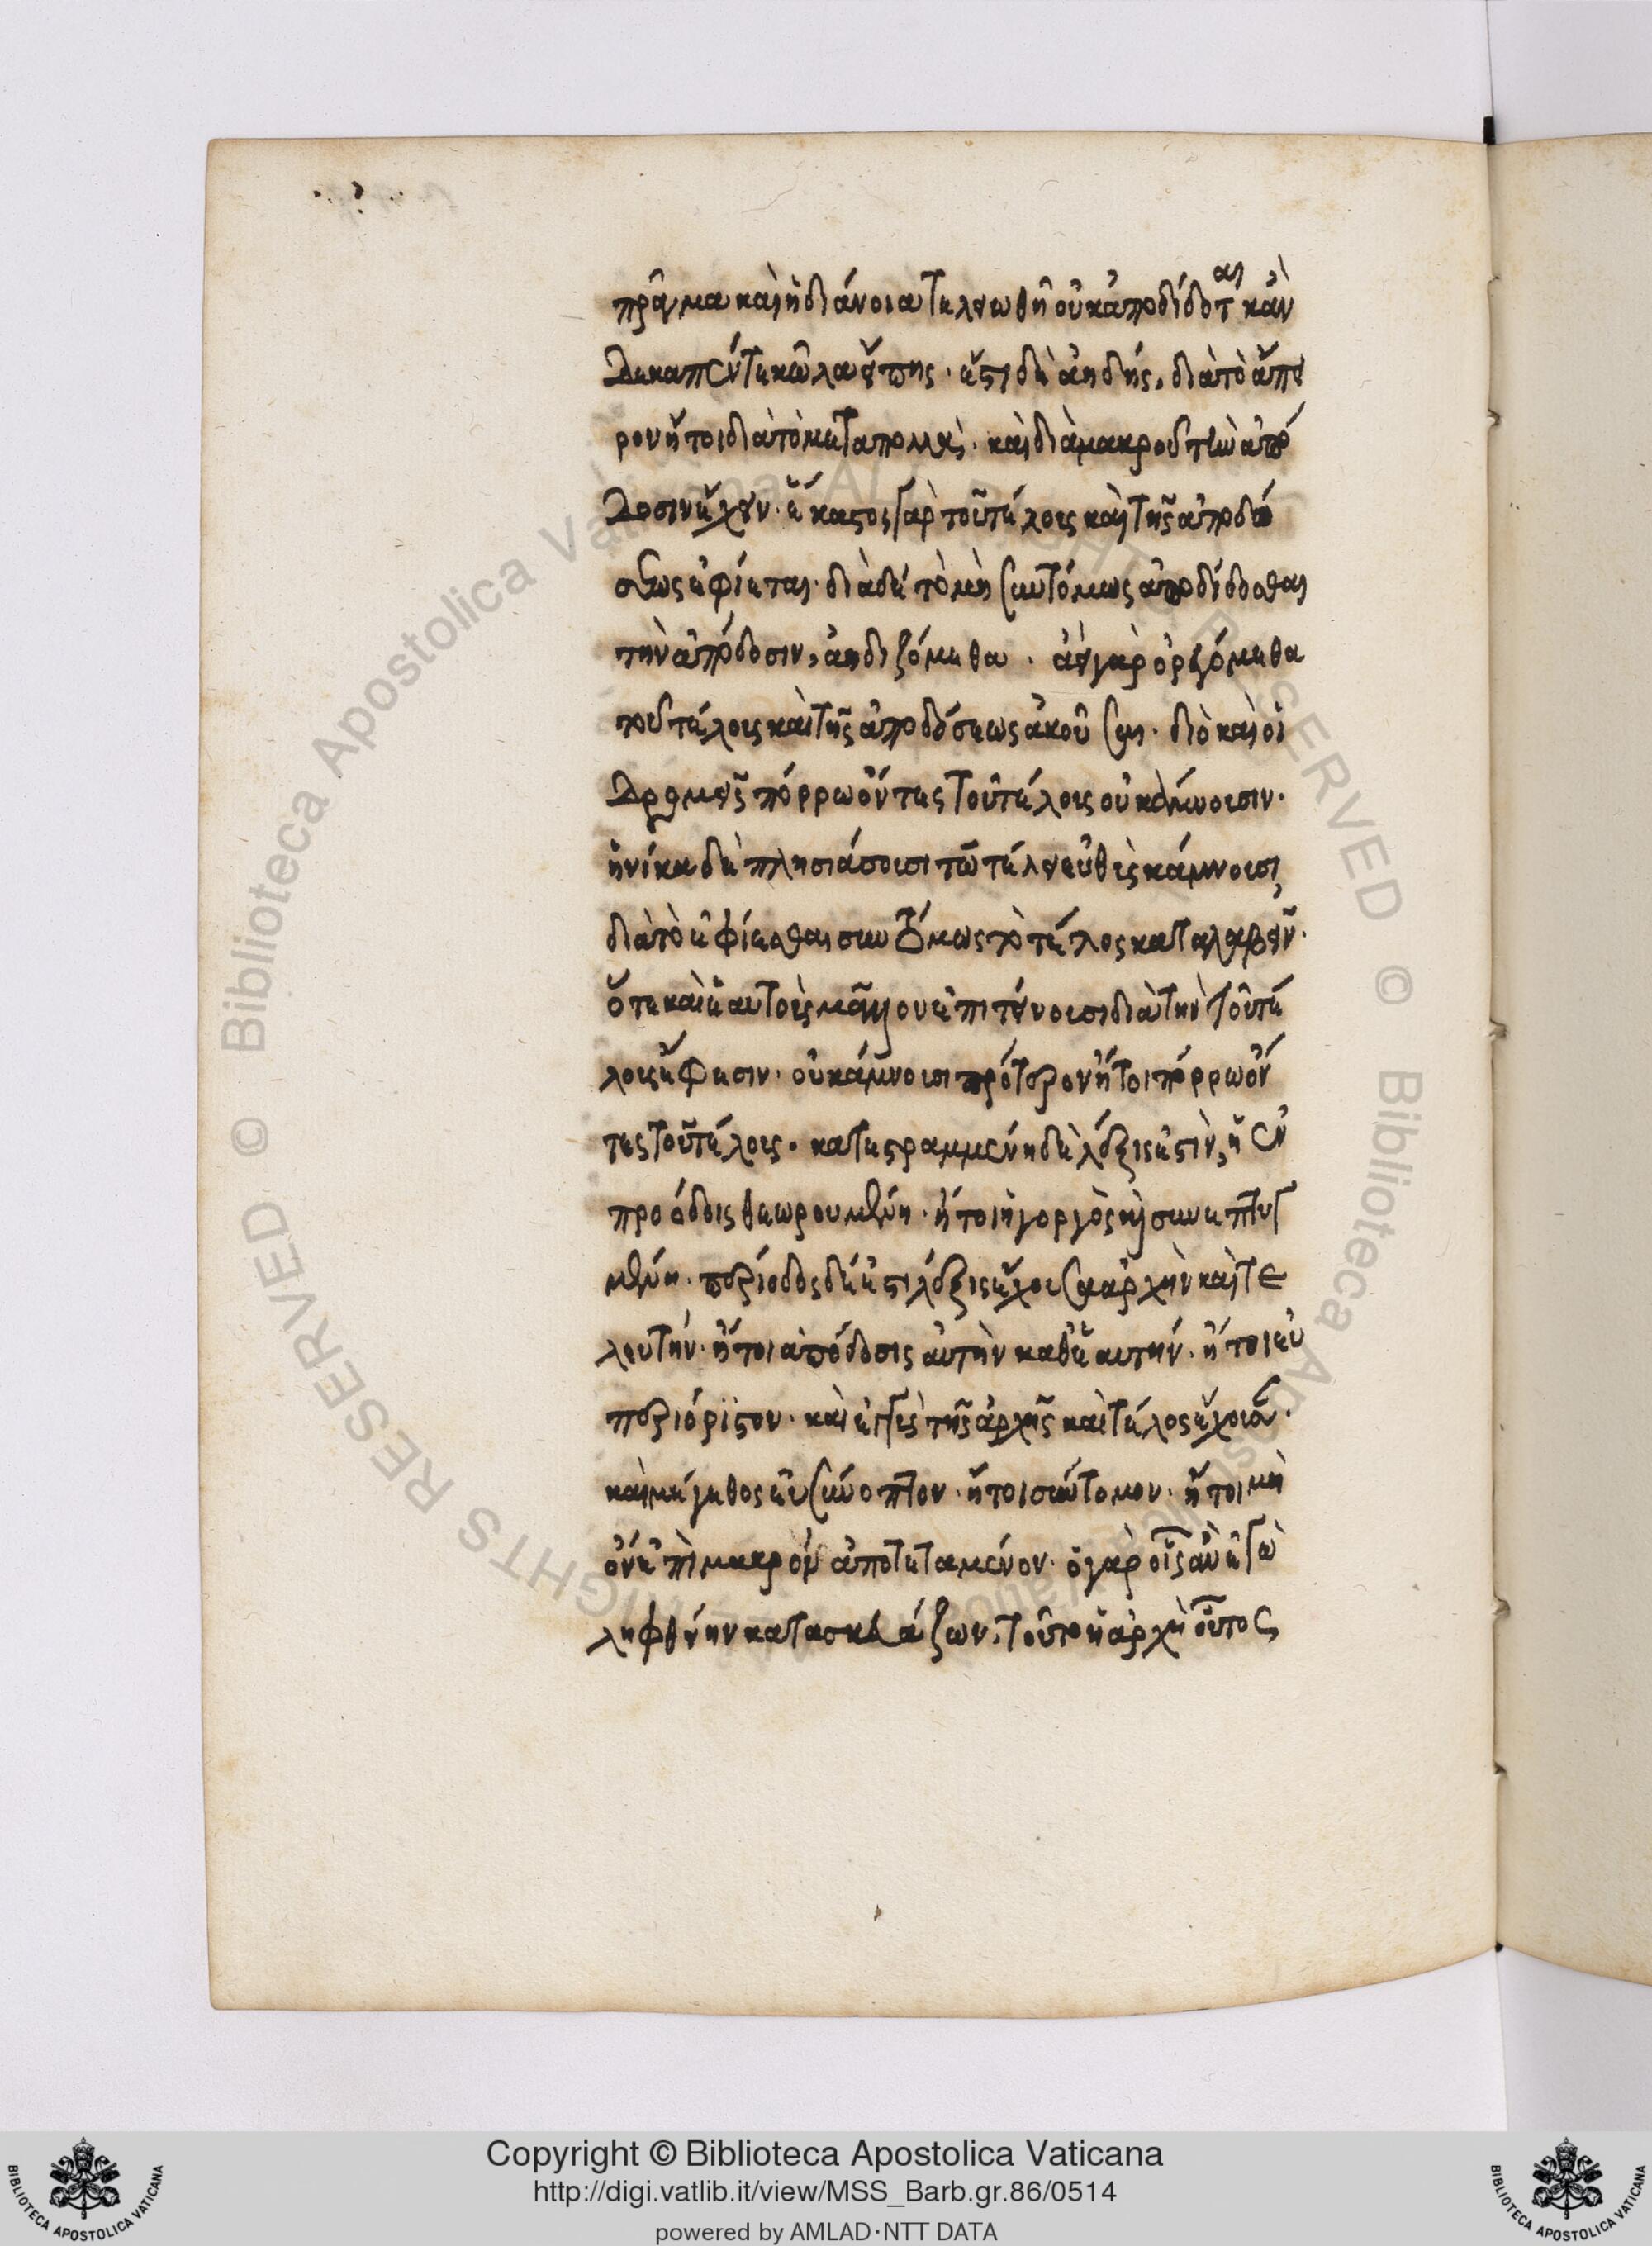 πρᾶγμα καὶ ἡ διάνοια τελειωθῆ οὐκ ἀποδίδοται κἂν
δεκαπέντε κῶλα εἴπης· ἔστι δὲ ἀηδής, διὰ τὸ ἄπει
ρον ἤτοι διὰ τὸ μετὰ πολλὰ· καὶ διὰ μακροῦ τὴν ἀπό
δοσιν ἔχειν· ἕκαστος γὰρ τοῦ τέλους καὶ τῆς ἀποδό
σεως ἐφίεται· διὰ δὲ τὸ μὴ συντόμως ἀποδίδοσθαι
τὴν ἀπόδοσιν, ἀηδιζόμεθα· ἀεὶ γὰρ ὀρεγόμεθα
τοῦ τέλους καὶ τῆς ἀποδόσεως ἀκοῦσαι· διὸ καὶ οἱ
δρομεῖς πόρρω ὄντες τοῦ τέλους οὐ κάμνουσιν·
ἡνίκα δὲ πλησιάσουσι τῶ τέλει εὐθὺς κάμνουσι,
διὰ τὸ ἐφίεσθαι συντόμως τὸ τέλος καταλαβεῖν·
ὅτε καὶ ἑαυτοὺς μᾶλλον ἐπιτείνουσι διὰ τὴν τοῦ τέ
λους ἔφεσιν· οὐ κάμνουσι πρότερον ἤτοι πόρρω ὄν
τες τοῦ τέλους· κατεστραμμένη δὲ λέξις ἐστὶν, ἡ ἐν
προόδοις θεωρουμένη· ἤτοι ἡ γοργὸς καὶ συνεπτυγ
μένη· περίοδος δέ ἐστι λέξις ἔχουσα ἀρχὴν καὶ τε
λευτήν· ἤτοι ἀπόδοσις αὐτὴν καθ' ἑαυτήν· ἤτοι εὐ
περιόριστον· καὶ ἐγγὺς τῆς ἀρχῆς καὶ τέλος ἔχουσα·
καὶ μέγεθος εὐσύνοπτον· ἤτοι σύντομον· ἤτοι μὴ
ὂν ἐπὶ μακρὸν ἀποτεταμένον· ὁ γὰρ οἷς ἂν ἐγὼ
ληφθείην κατασκευάζων, τοῦτο ἡ ἀρχὴ οὗτος
Copyright © Biblioteca Apostolica Vaticana
http://digi.vatlib.it/view/MSS_Barb.gr.86/0514
powered by AMLAD·NTT DATA